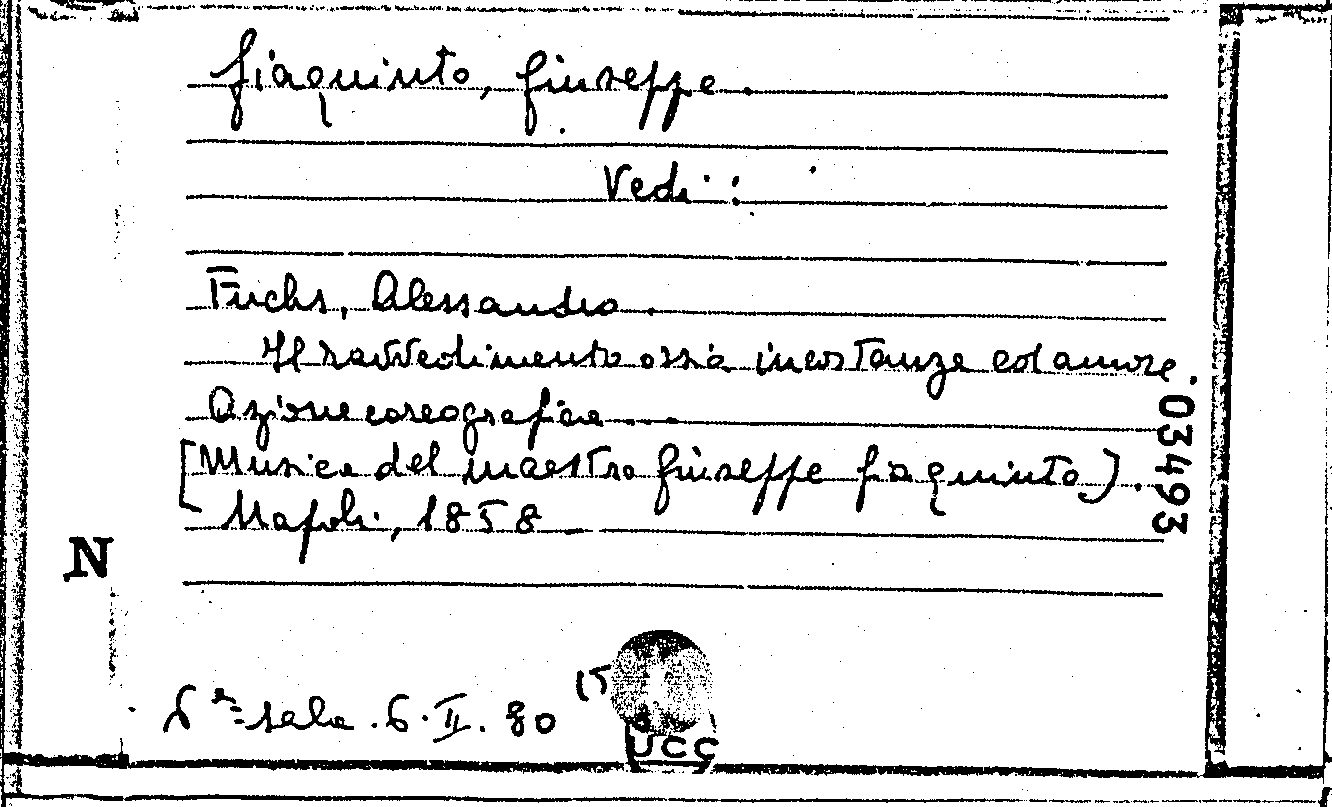 Giaquinto, Giuseppe.
Vedi:
Fuchs, Alessandro.
Il ravvedimento ossia incostanze ed amore.
Azione coreografica...
[Musica del maestro Giuseppe Giaquinto].
Napoli, 1858
03493
N
6ª sala.6.II.80
(5
UCC